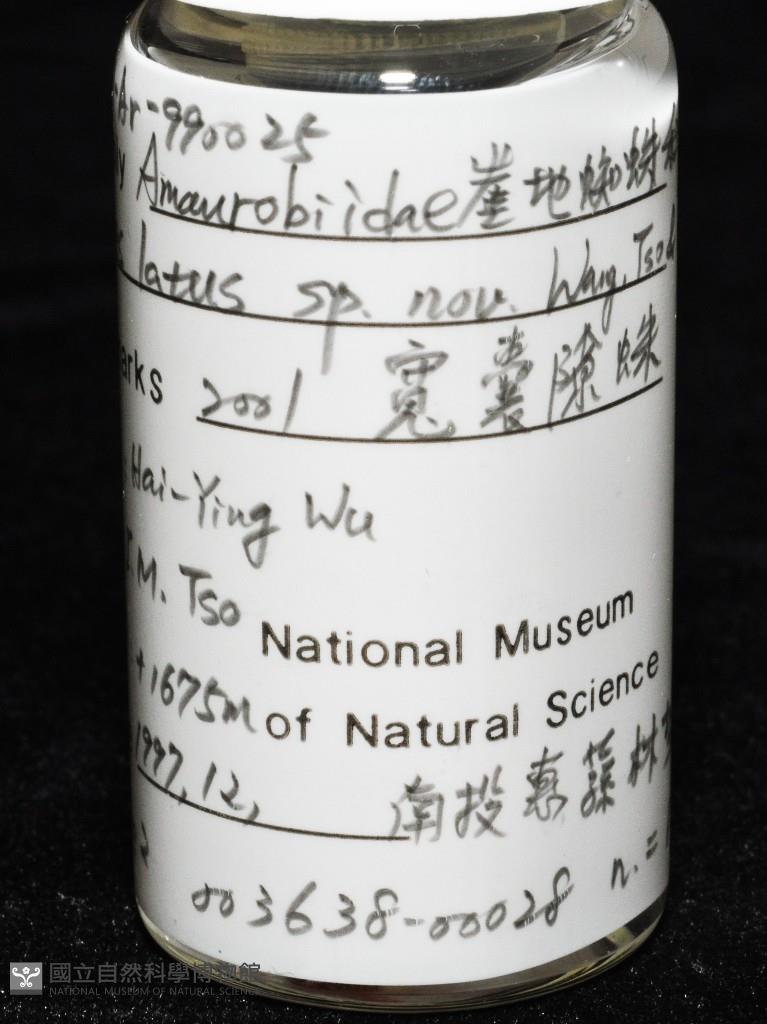 Ar-990025
Amaurobiidae 崖地蜘蛛科
latus sp. nov. Wang, Tso &
arks 2001 寬囊隙蛛
Hai-Ying Wu
I.M. Tso
National Museum
+1675m of Natural Science
1997, 12, 南投惠蓀林
2
003638-00028 n.=
國立自然科學博物館
NATIONAL MUSEUM OF NATURAL SCIENCE